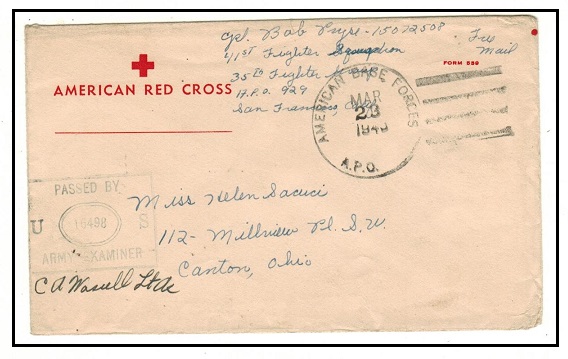 Cpl. Bob - 15072508
41st Fighter Squadron
35th Fighter
A.P.O. 929
San Francisco
Free
Mail
FORM 539
AMERICAN RED CROSS
AMERICAN BASE FORCES
MAR
23
A.P.O.
PASSED BY
U 16498 S
ARMY EXAMINER
Miss Helen
112- Millview Pl. S.W.
Canton, Ohio